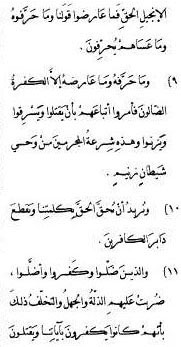 الإنجيل الحقّ فما عارضوا قولنا وما حرّفوه
وما عساهم يحرّفون.
٩) وما حرّفه وما عارضه إلا الكفرة
الضالّون فأمروا أتباعهم بأن يقتلوا ويسرقوا
ويزنوا وهذه شرعة المجرمين من وحي
شيطان زنيم.
١٠) ونريد أن نحقّ الحقّ بكلمتنا ونقطع
دابر الكافرين.
١١) والذين ضلّوا وكفروا وأضلّوا،
ضربت عليهم الذلّة والجهل والتخلّف ذلك
بأنهم كانوا يكفرون بآياتنا ويقتلون